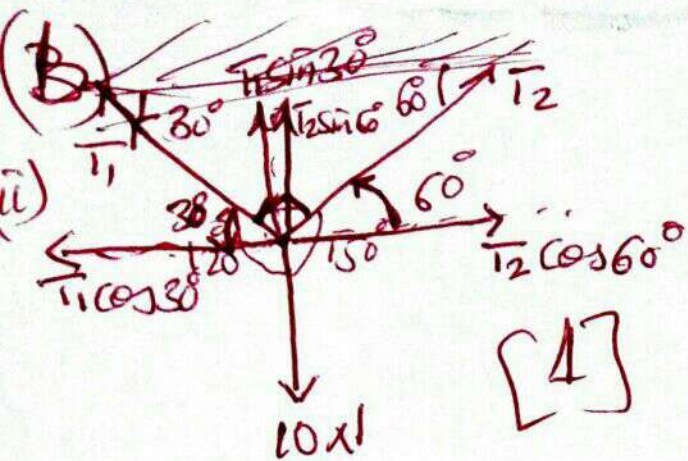 (B)
T₁sin30°
30° T₂sin60° 60° T₂
T₁
(ii)
30° 60°
120° 150°
T₁cos30° T₂cos60°
[1]
10N